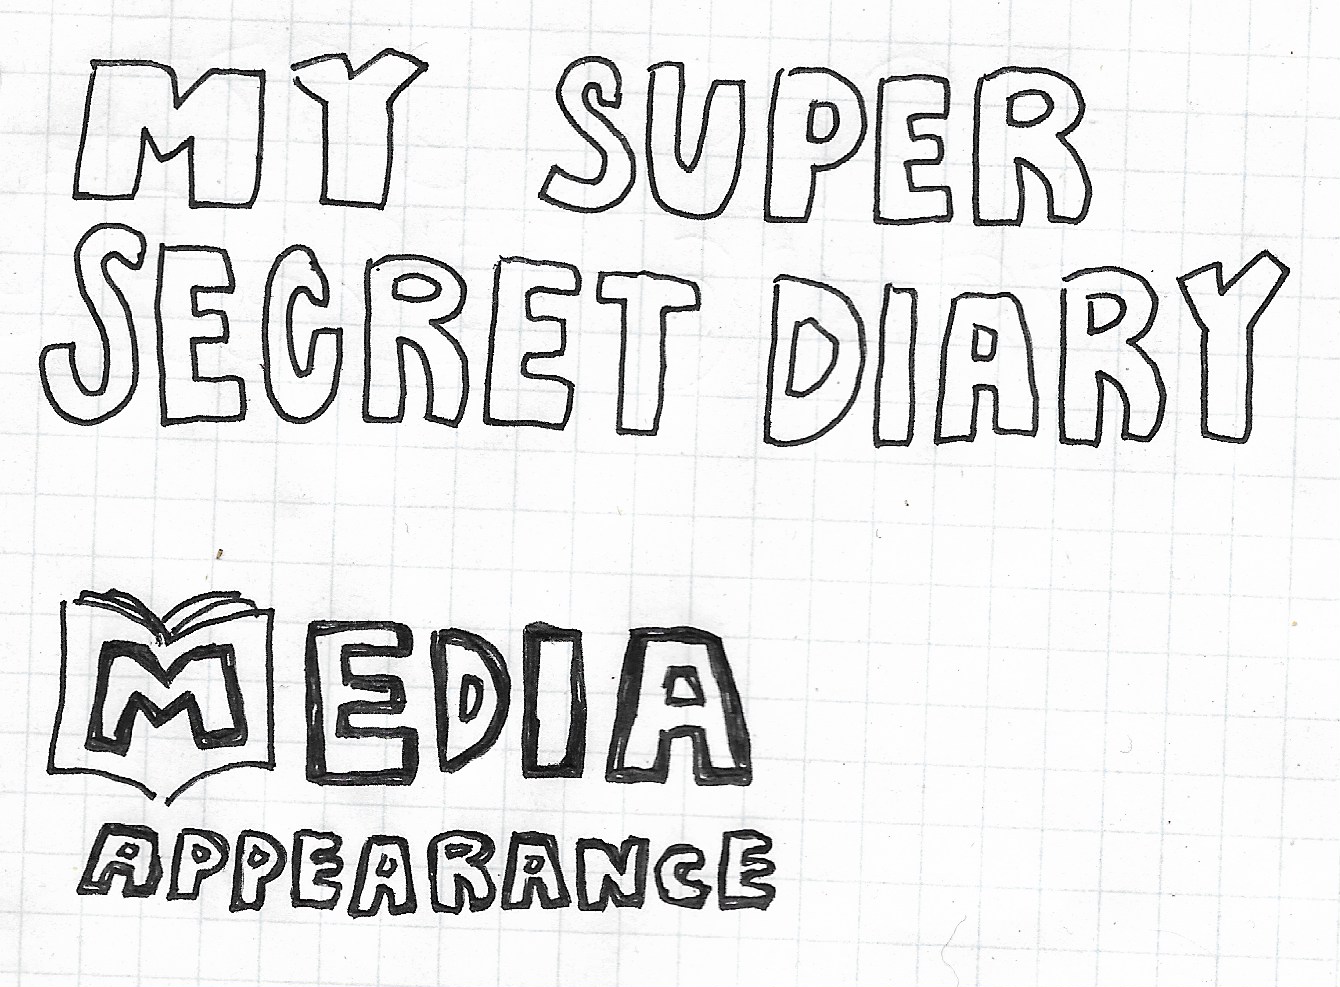 MY SUPER
SECRET DIARY
MEDIA
APPEARANCE